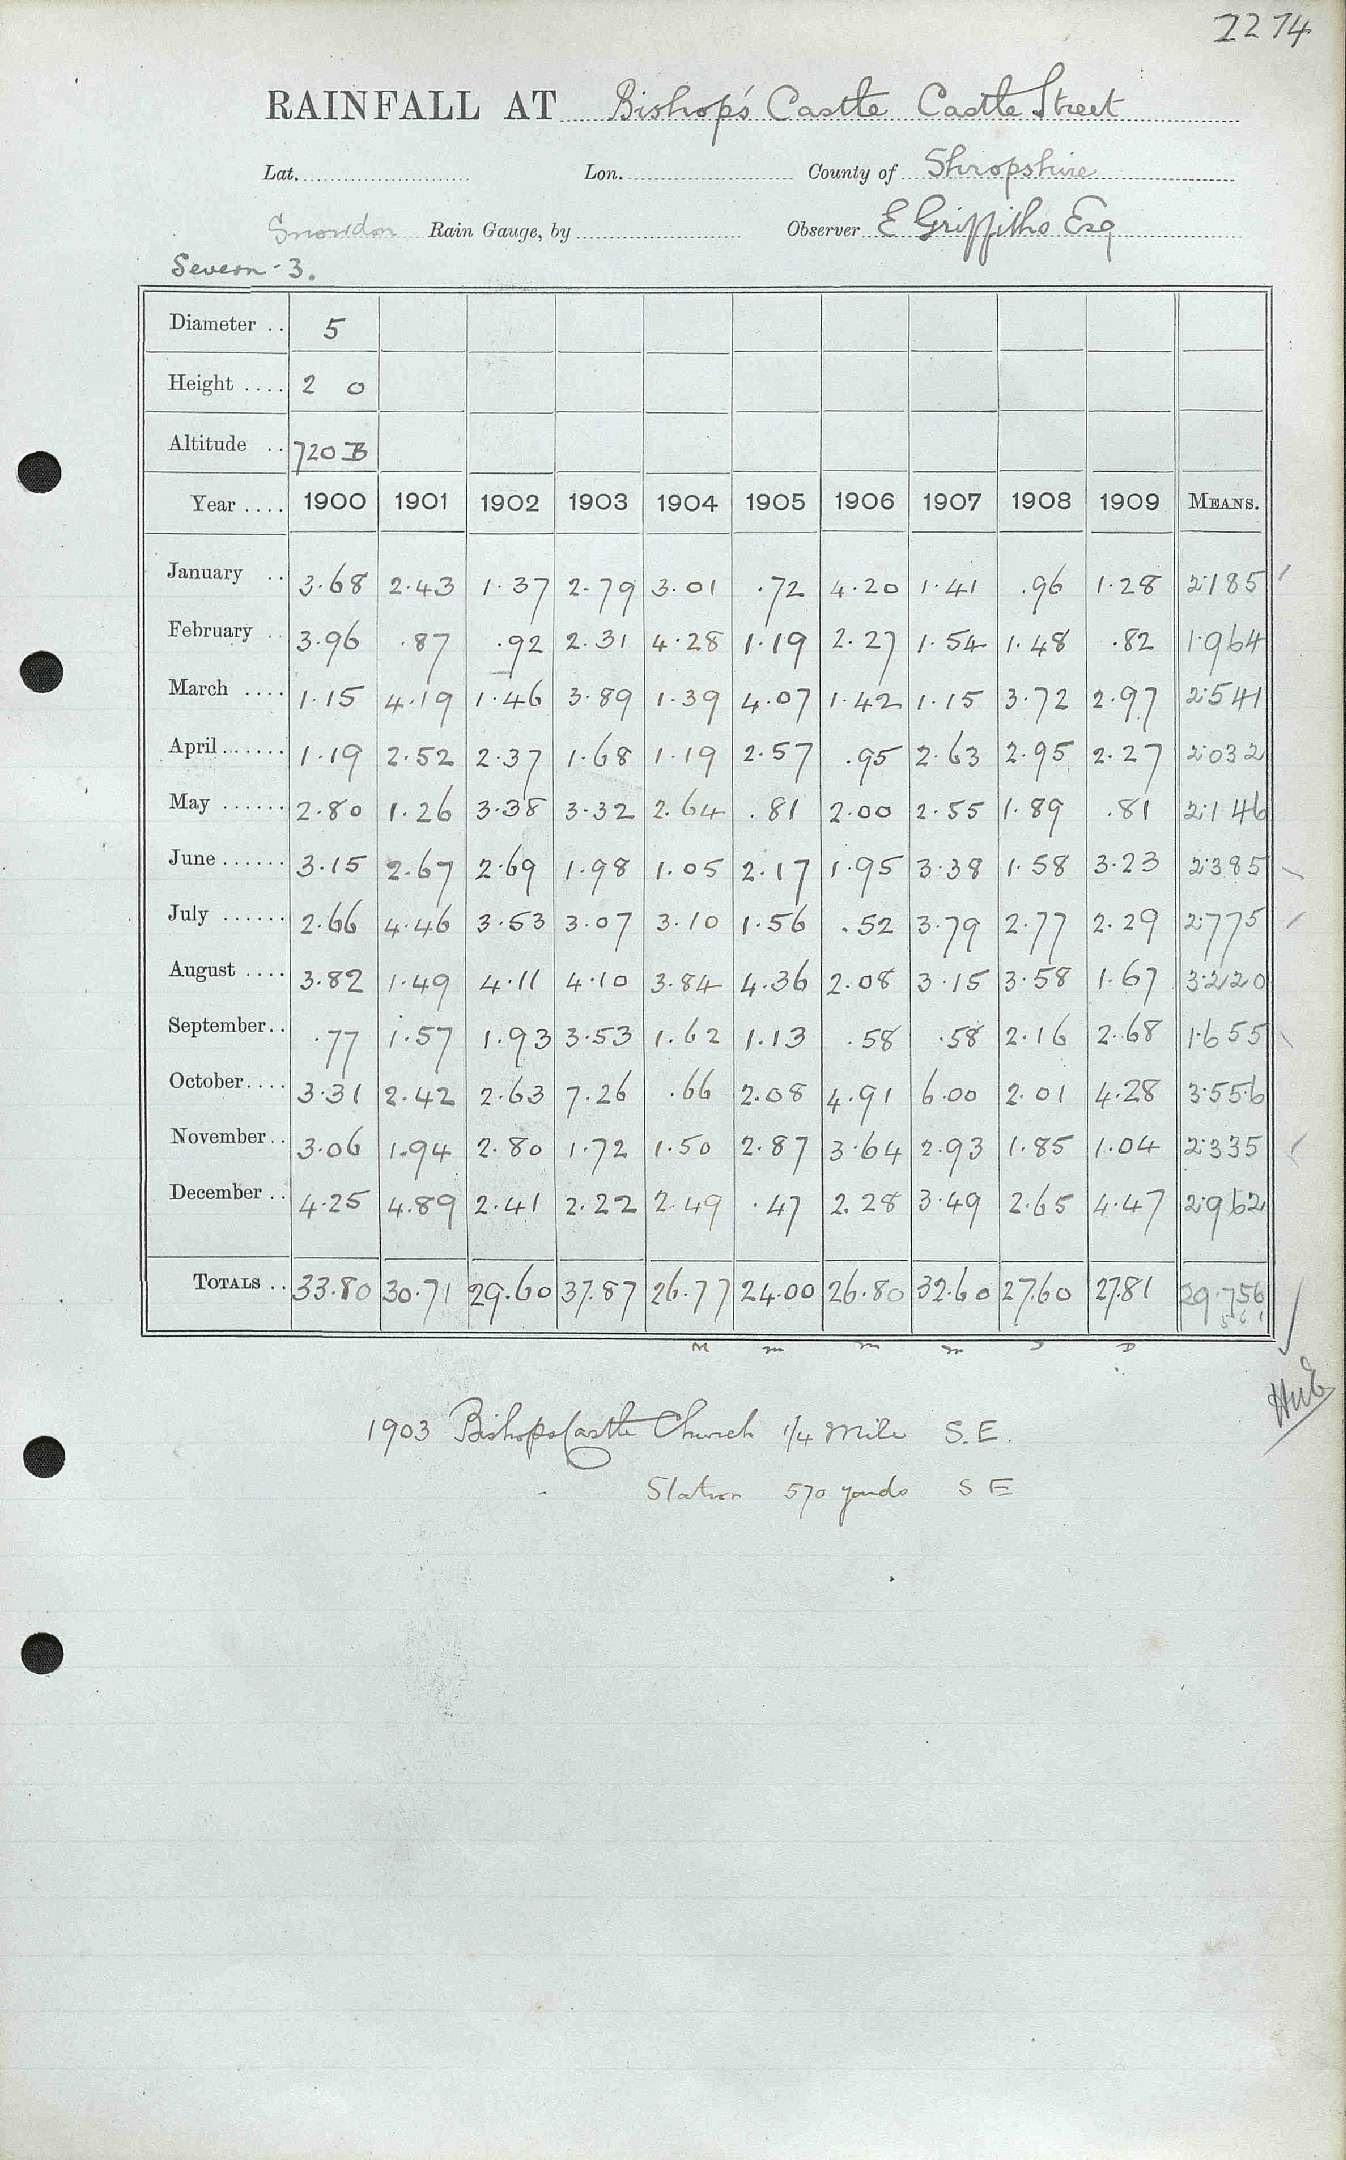 2274
RAINFALL AT Bishop's Castle Castle Street
Lat. Lon. County of Shropshire
Snowdon Rain Gauge, by Observer E Griffiths Esq
Severn - 3.
Diameter .. 5
Height .... 2 0
Altitude .. 720 B
Year .... 1900 1901 1902 1903 1904 1905 1906 1907 1908 1909 MEANS.
January .. 3.68 2.43 1.37 2.79 3.01 .72 4.20 1.41 .96 1.28 2.185
February .. 3.96 .87 .92 2.31 4.28 1.19 2.27 1.54 1.48 .82 1.964
March .... 1.15 4.19 1.46 3.89 1.39 4.07 1.42 1.15 3.72 2.97 2.541
April ...... 1.19 2.52 2.37 1.68 1.19 2.57 .95 2.63 2.95 2.27 2.032
May ...... 2.80 1.26 3.38 3.32 2.64 .81 2.00 2.55 1.89 .81 2.146
June ...... 3.15 2.67 2.69 1.98 1.05 2.17 1.95 3.38 1.58 3.23 2.385
July ...... 2.66 4.46 3.53 3.07 3.10 1.56 .52 3.79 2.77 2.29 2.775
August .... 3.82 1.49 4.11 4.10 3.84 4.36 2.08 3.15 3.58 1.67 3.220
September.. .77 1.57 1.93 3.53 1.62 1.13 .58 .58 2.16 2.68 1.655
October.... 3.31 2.42 2.63 7.26 .66 2.08 4.91 6.00 2.01 4.28 3.556
November.. 3.06 1.94 2.80 1.72 1.50 2.87 3.64 2.93 1.85 1.04 2.335
December .. 4.25 4.89 2.41 2.22 2.49 .47 2.28 3.49 2.65 4.47 2.962
TOTALS .. 33.80 30.71 29.60 37.87 26.77 24.00 26.80 32.60 27.60 27.81 29.756
M m m m S D
1903 Bishops Castle Church 1/4 Mile S.E.
Station 570 yards S E